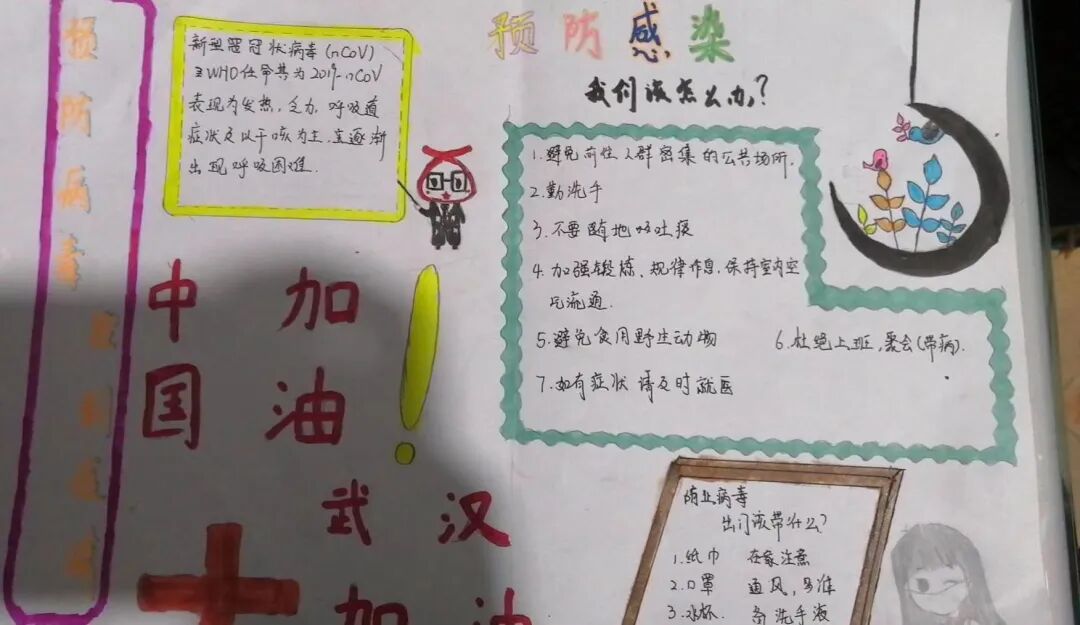 预防病毒
新型冠冠状病毒(nCoV)
WHO任命其为2019-nCoV
表现为发热，乏力，呼吸道
症状及以干咳为主，并逐渐
出现呼吸困难.
预防感染
我们该怎么办？
1.避免前往人群密集的公共场所.
2.勤洗手
3.不要随地咳吐痰
4.加强锻炼、规律作息.保持室内空
气流通.
5.避免食用野生动物
6.杜绝上班，聚会(带病).
7.如有症状 请及时就医
中 加
国 油
！
武 汉
加 油
防止病毒
出门该带什么?
1.纸巾 在家注意
2.口罩 通风，
3.水杯. 备洗手液